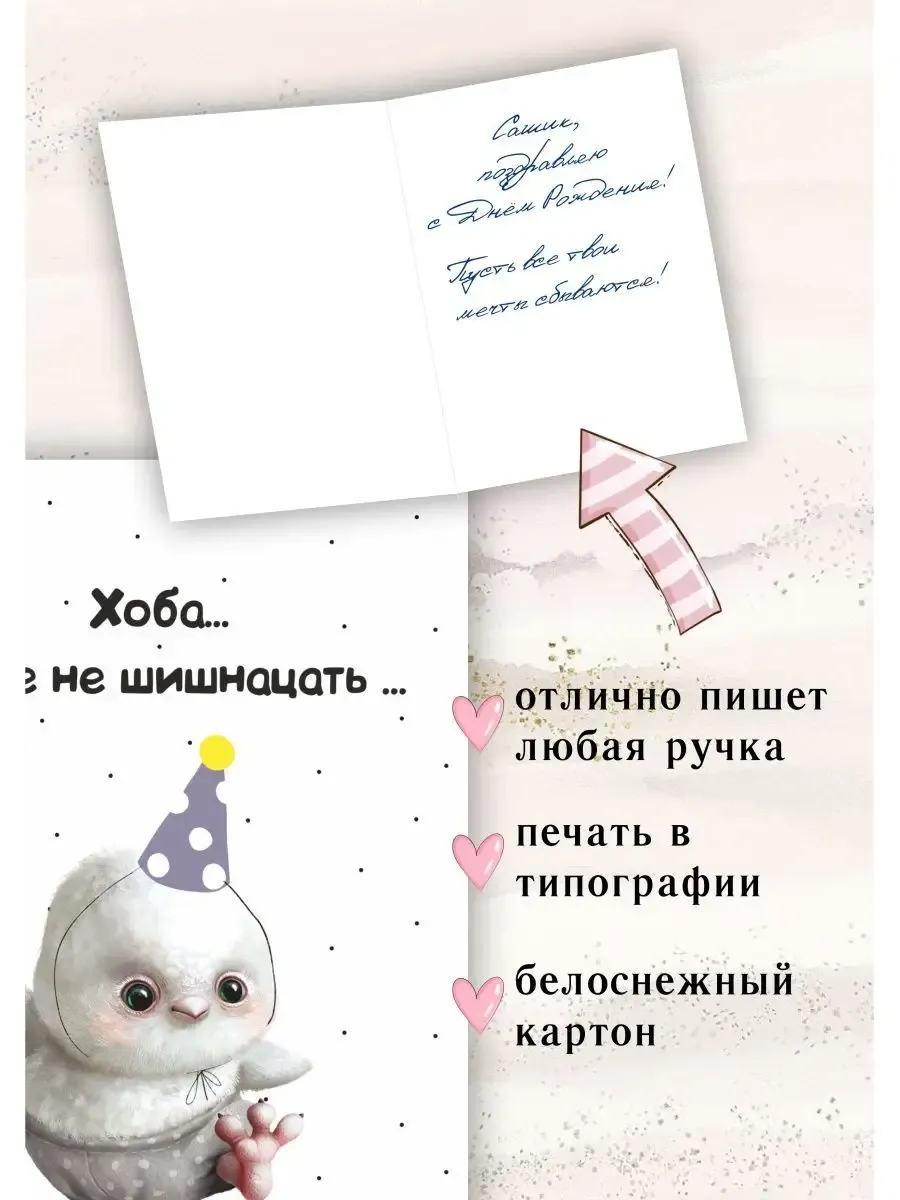 Сашик,
поздравляю
с Днём Рождения!
Пусть все твои
мечты сбываются!
Хоба...
е не шишнацать ...
отлично пишет
любая ручка
печать в
типографии
белоснежный
картон